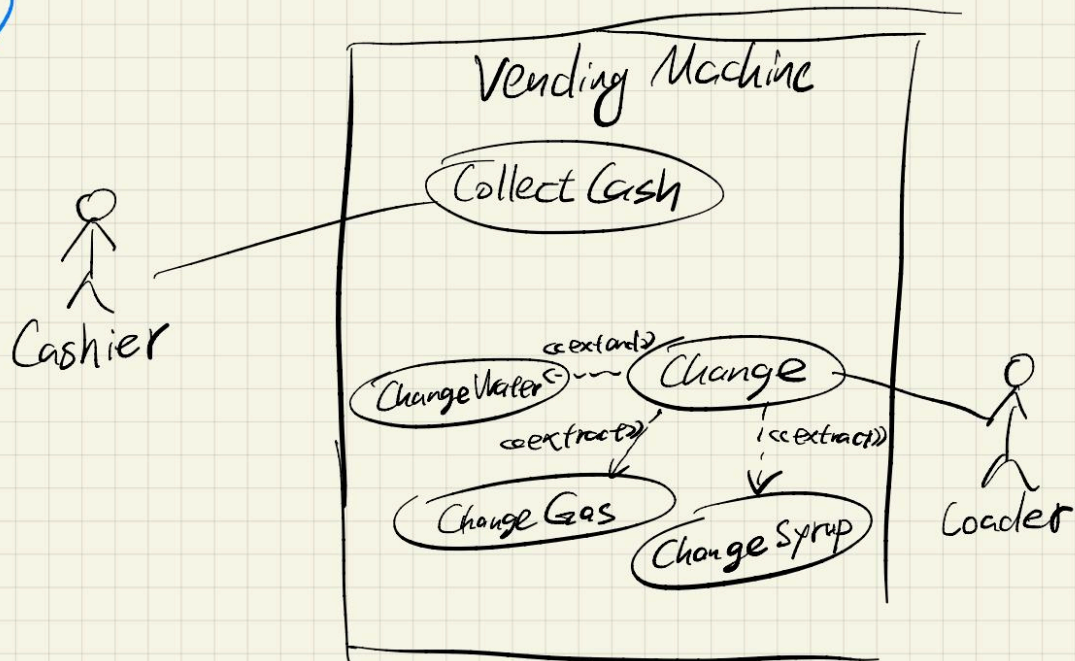 Vending Machine
Collect Cash
Cashier
<<extand>>
Change
ChangeWater
<<extract>>
<<extract>>
Change Gas
Change Syrup
Loader